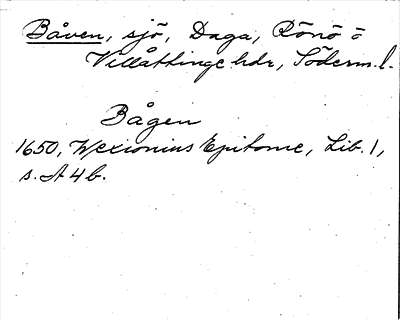 Båven, sjö, Daga, Rönö o
Villåttinge hdr, Söderm.l.
Bågen
1650, Wexionius Epitome, Lib. 1,
s. A 4 b.